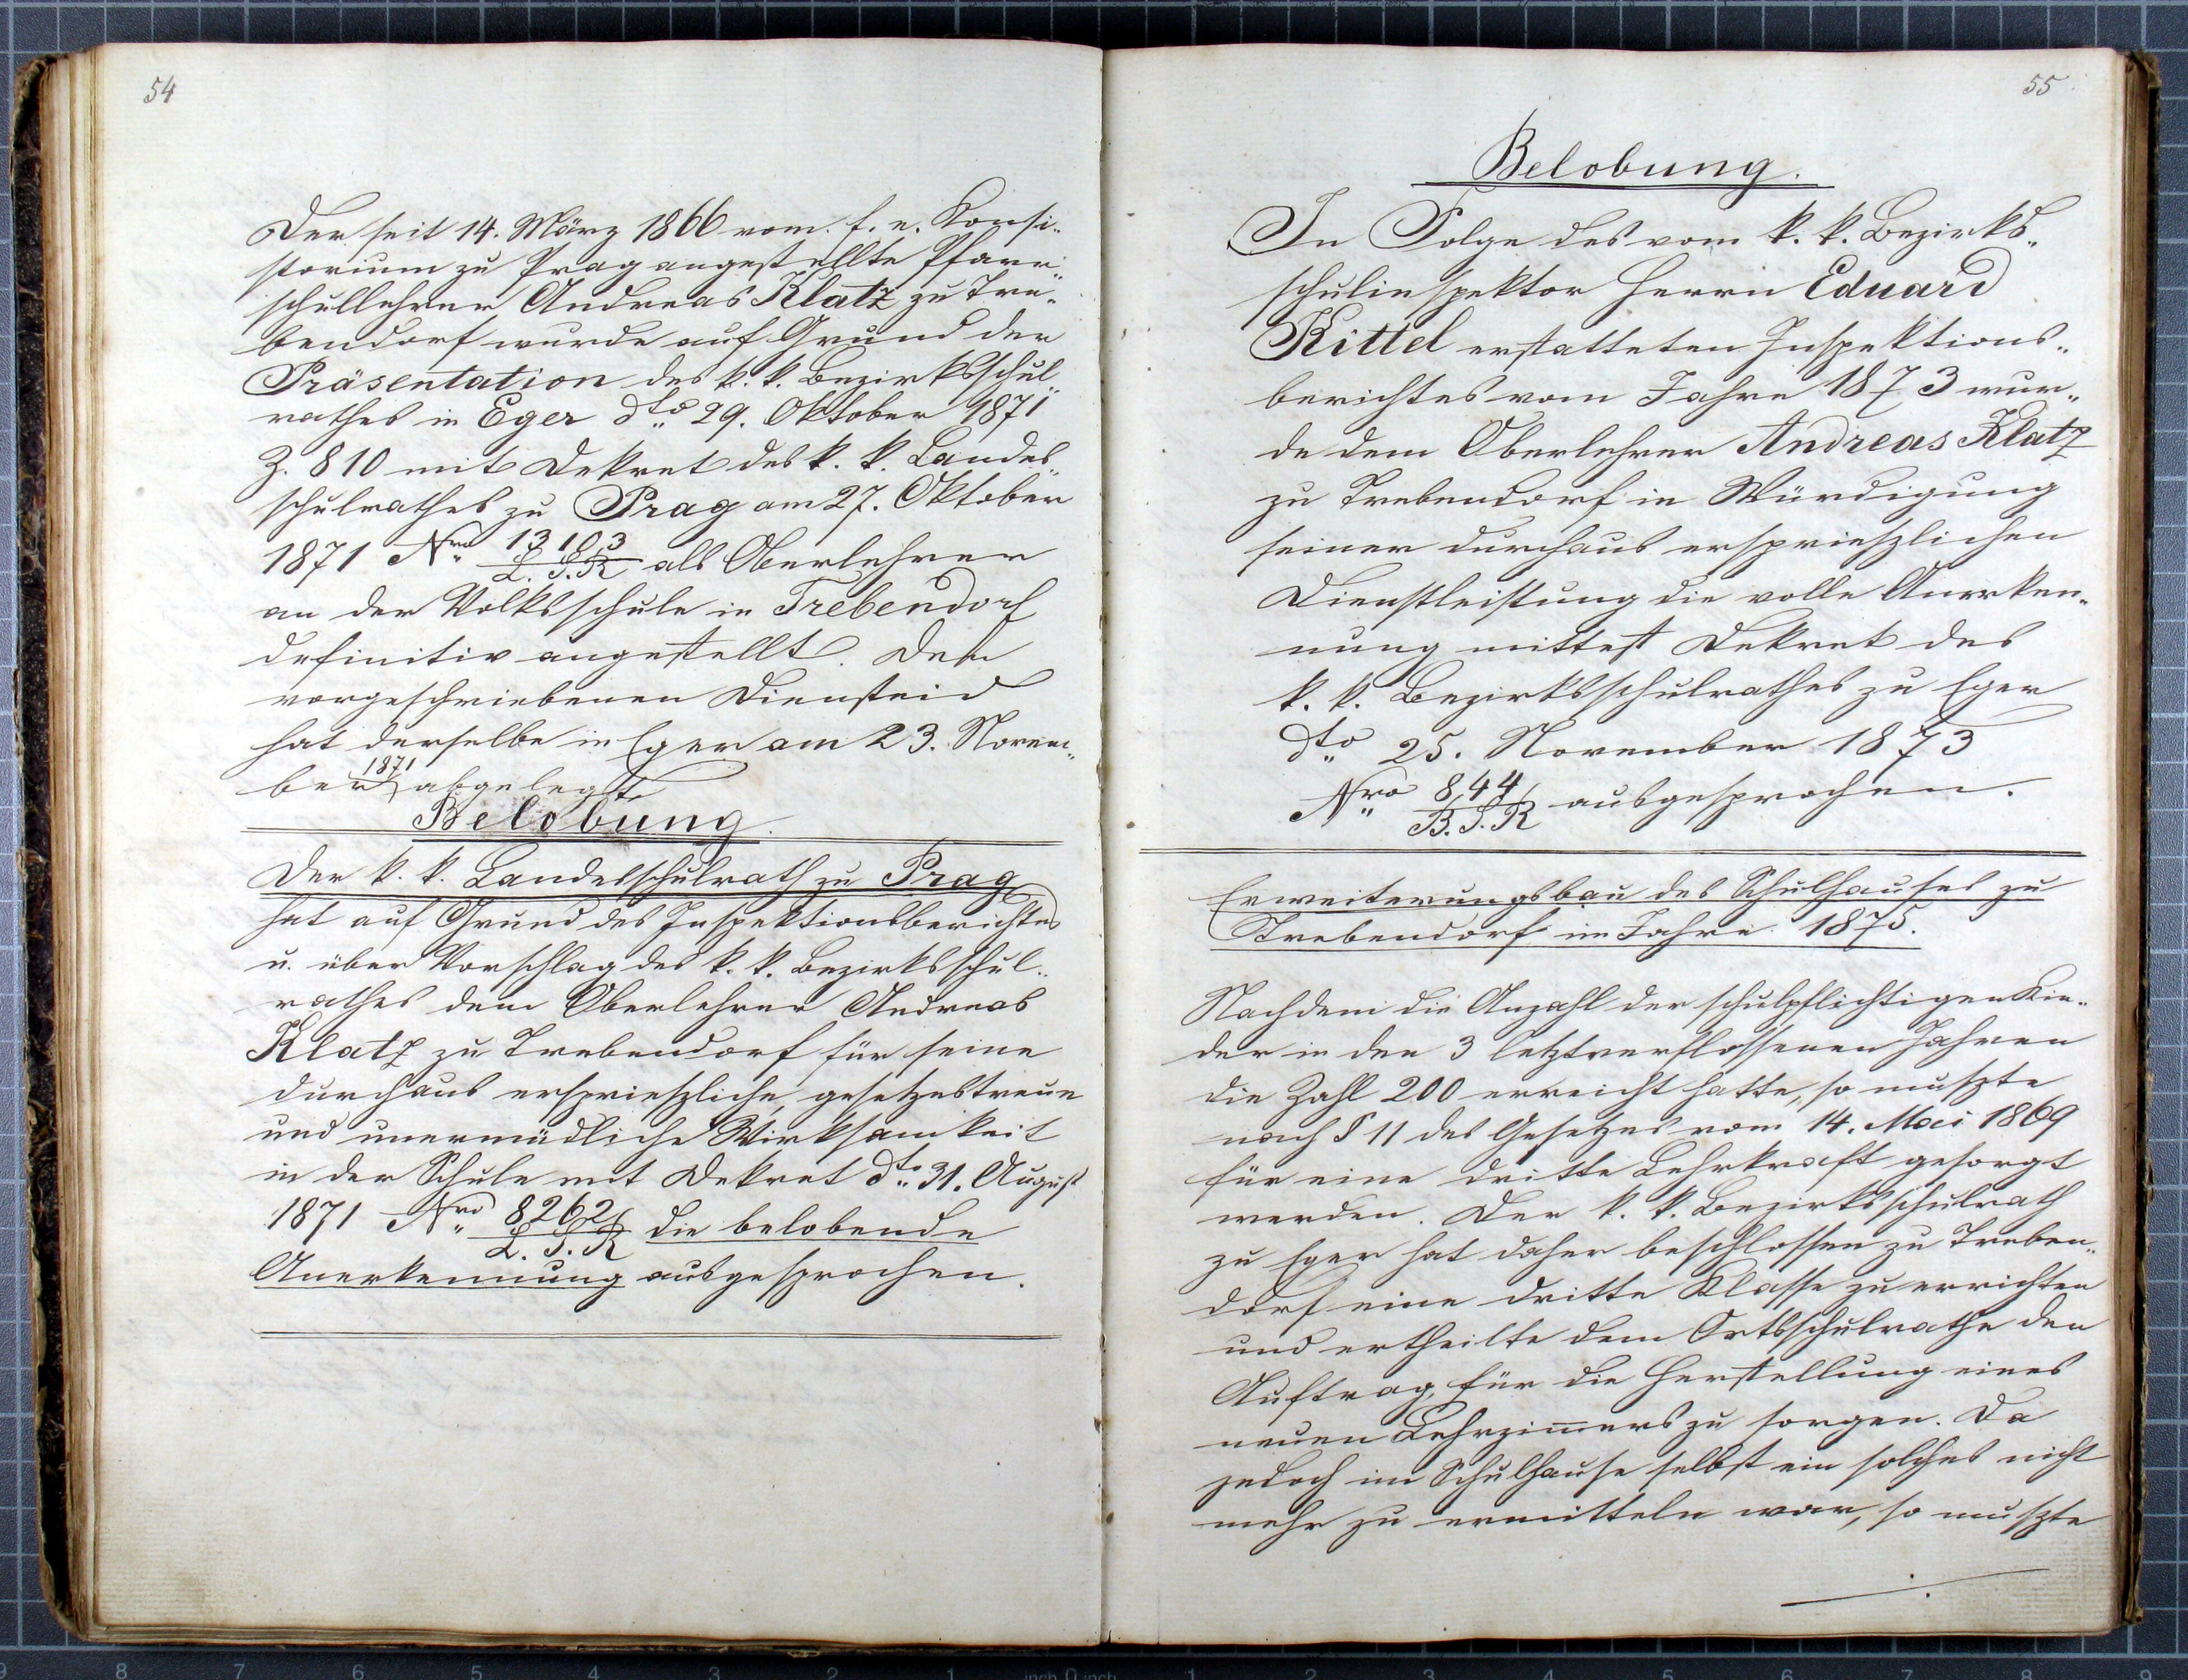 54
Der seit 14. März 1866 vom f. e. Konsi„
storium zu Prag angestellte Pfarr„
schullehrer Andreas Klatz zu Tre„
bendorf wurde auf Grund der
Präsentation des k. k. Bezirksschul„
rathes in Eger dto 29. Oktober 1871
Z. 810 mit Dekret des k. k. Landes„
schulrathes zu Prag am 27. Oktober
1871 Nro 13103/L.S.R als Oberlehrer
an der Volksschule in Trebendorf
definitiv angestellt. Den
vorgeschriebenen Diensteid
hat derselbe in Eger am 23. Novem„
ber 1871 abgelegt.
Belobung.
Der k. k. Landesschulrath zu Prag
hat auf Grund des Inspektionsberichtes
u. über Vorschlag des k. k. Bezirksschul„
rathes dem Oberlehrer Andreas
Klatz zu Trebendorf für seine
durchaus ersprießliche, gesetzestreue
und unermüdliche Wirksamkeit
in der Schule mit Dekret dto 31. August
1871 Nro 8262/L.S.R die belobende
Anerkennung ausgesprochen.
55
Belobung.
In Folge des vom k. k. Bezirks„
schulinspektor Herrn Eduard
Kittel erstatteten Inspektions„
berichtes vom Jahre 1873 wur„
de dem Oberlehrer Andreas Klatz
zu Trebendorf in Würdigung
seiner durchaus ersprieszlichen
Dienstleistung die volle Anerken„
nung mittest Dekret des
k. k. Bezirksschulrathes zu Eger
dto 25. November 1873
Nro 844/B.S.R ausgesprochen.
Erweiterungsbau des Schulhauses zu
Trebendorf im Jahre 1875.
Nachdem die Anzahl der schulpflichtigen Kin„
der in den 3 letztverflossenen Jahren
die Zahl 200 erreicht hatte, so muszte
nach § 11 des Gesetzes vom 14. Mai 1869
für eine dritte Lehrkraft gesorgt
werden. Der k. k. Bezirksschulrath
zu Eger hat daher beschlossen zu Treben„
dorf eine dritte Klasse zu errichten
und ertheilte dem Ortsschulrathe den
Auftrag, für die Herstellung eines
neuen Lehrzimers zu sorgen. Da
jedoch im Schulhause selbst ein solches nicht
mehr zu ermitteln war, so muszte